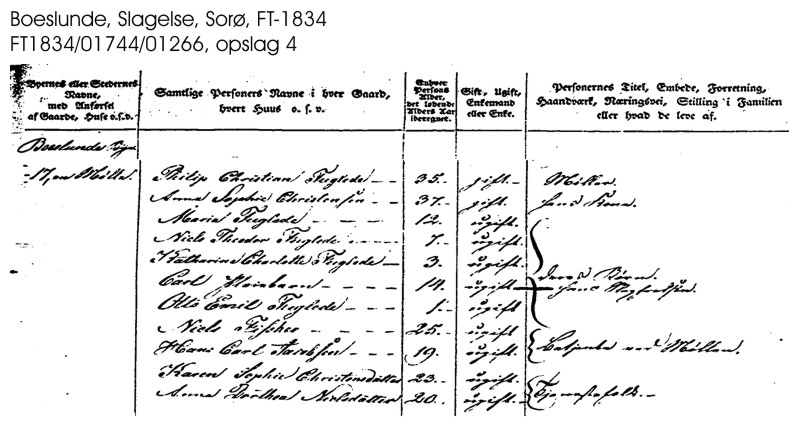 Boeslunde, Slagelse, Sorø, FT-1834
FT1834/01744/01266, opslag 4
Byernes eller Stedernes Navne, med Anførsel af Gaarde, Huse o.s.v.
Samtlige Personers Navne i hver Gaard, hvert Huus o. s. v.
Enhver Persons Alder, det løbende Alders Aar iberegnet.
Gift, Ugift, Enkemand eller Enke.
Personernes Titel, Embede, Forretning, Haandværk, Næringsvei, Stilling i Familien eller hvad de leve af.
Boeslunde Bye
17, en Mølle. Philip Christian Fuglede 35. gift. Møller.
Anna Sophie Christensen 37. gift. hans Kone.
Maria Fuglede 12. ugift.
Niels Theodor Fuglede 7. ugift.
Katharine Charlotte Fuglede 3. ugift. deres Børn.
Carl 14. ugift hans
Otto Emil Fuglede 1. ugift
Niels Fischer 25. ugift.
Hans Carl Jacobsen 19. ugift. Betjente ved Møllen.
Karen Sophie Christensdatter 23. ugift.
Anna Dorthea Nielsdatter 20. ugift. Tjenestefolk.